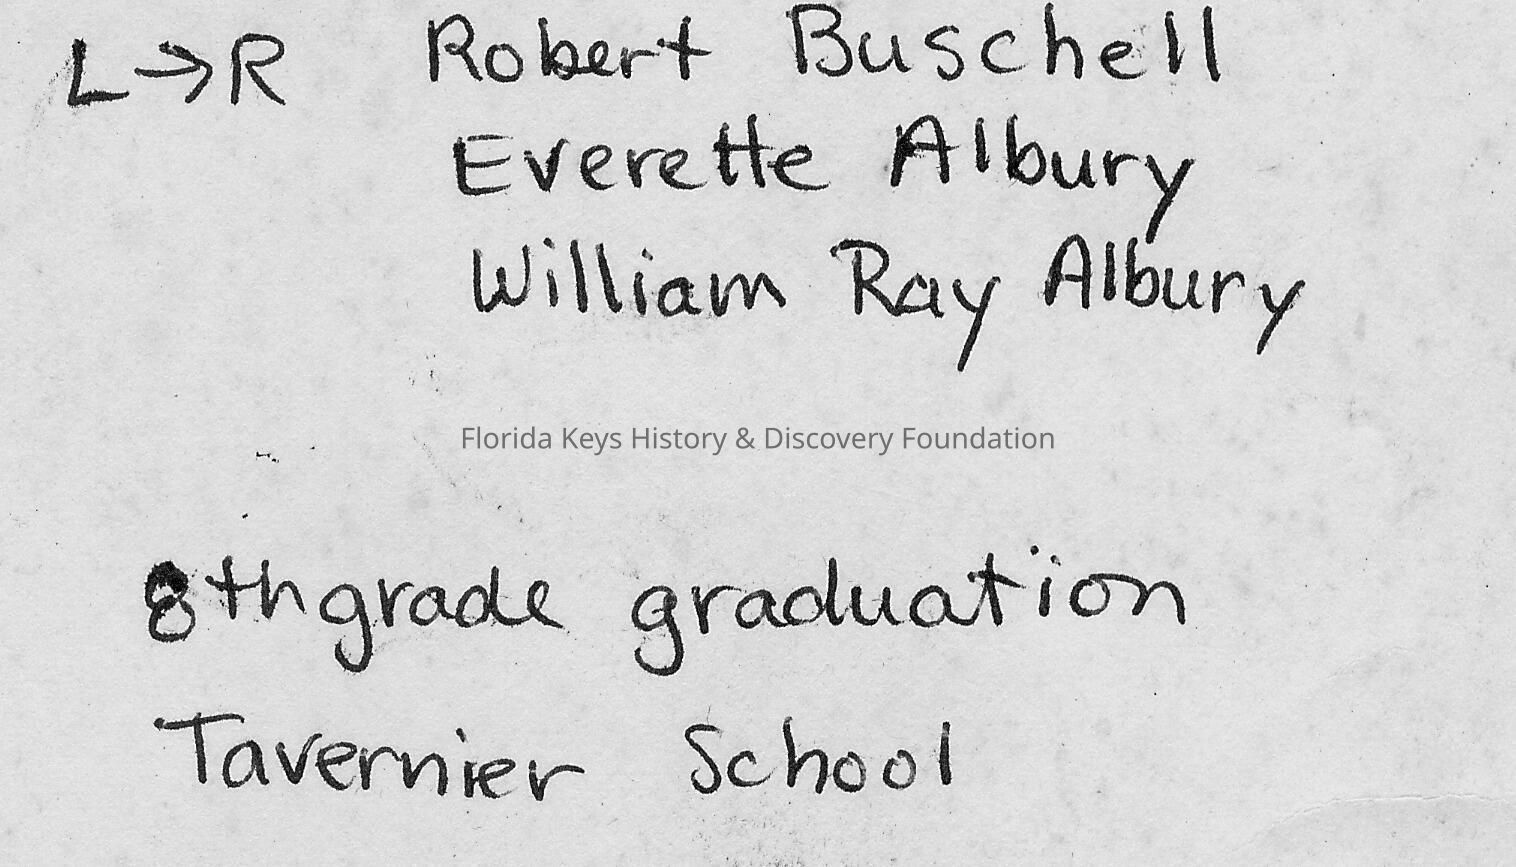 L→R Robert Buschell
Everette Albury
William Ray Albury
Florida Keys History & Discovery Foundation
8th grade graduation
Tavernier School